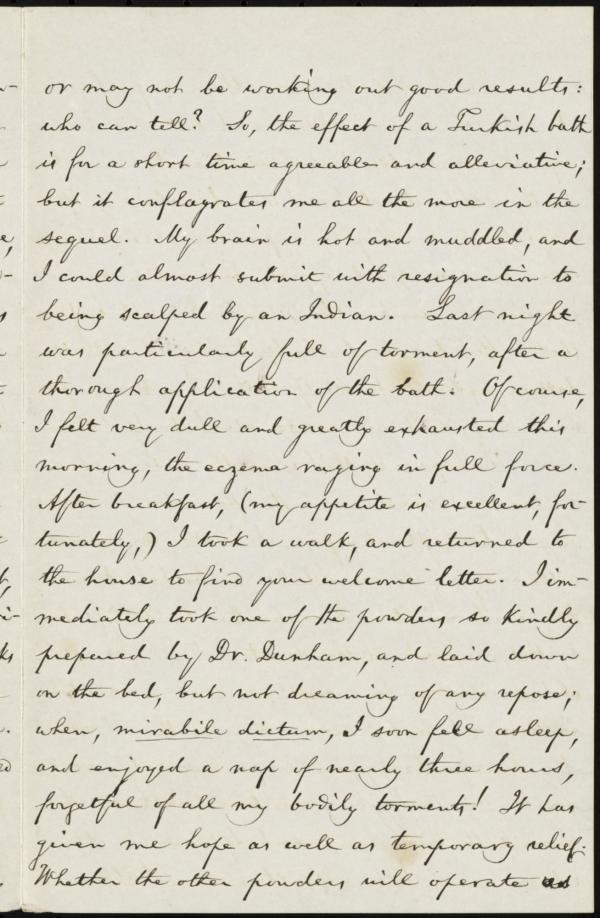 or may not be working out good results:
who can tell? So, the effect of a Turkish bath
is for a short time agreeable and alleviative;
but it conflagrates me all the more in the
sequel. My brain is hot and muddled, and
I could almost submit with resignation to
being scalped by an Indian. Last night
was particularly full of torment, after a
thorough application of the bath. Of course,
I felt very dull and greatly exhausted this
morning, the eczema raging in full force.
After breakfast, (my appetite is excellent, for-
tunately,) I took a walk, and returned to
the house to find your welcome letter. I im-
mediately took one of the powders so kindly
prepared by Dr. Dunham, and laid down
on the bed, but not dreaming of any repose;
when, mirabile dictum, I soon fell asleep,
and enjoyed a nap of nearly three hours,
forgetful of all my bodily torments! It has
given me hope as well as temporary relief.
Whether the other powders will operate as